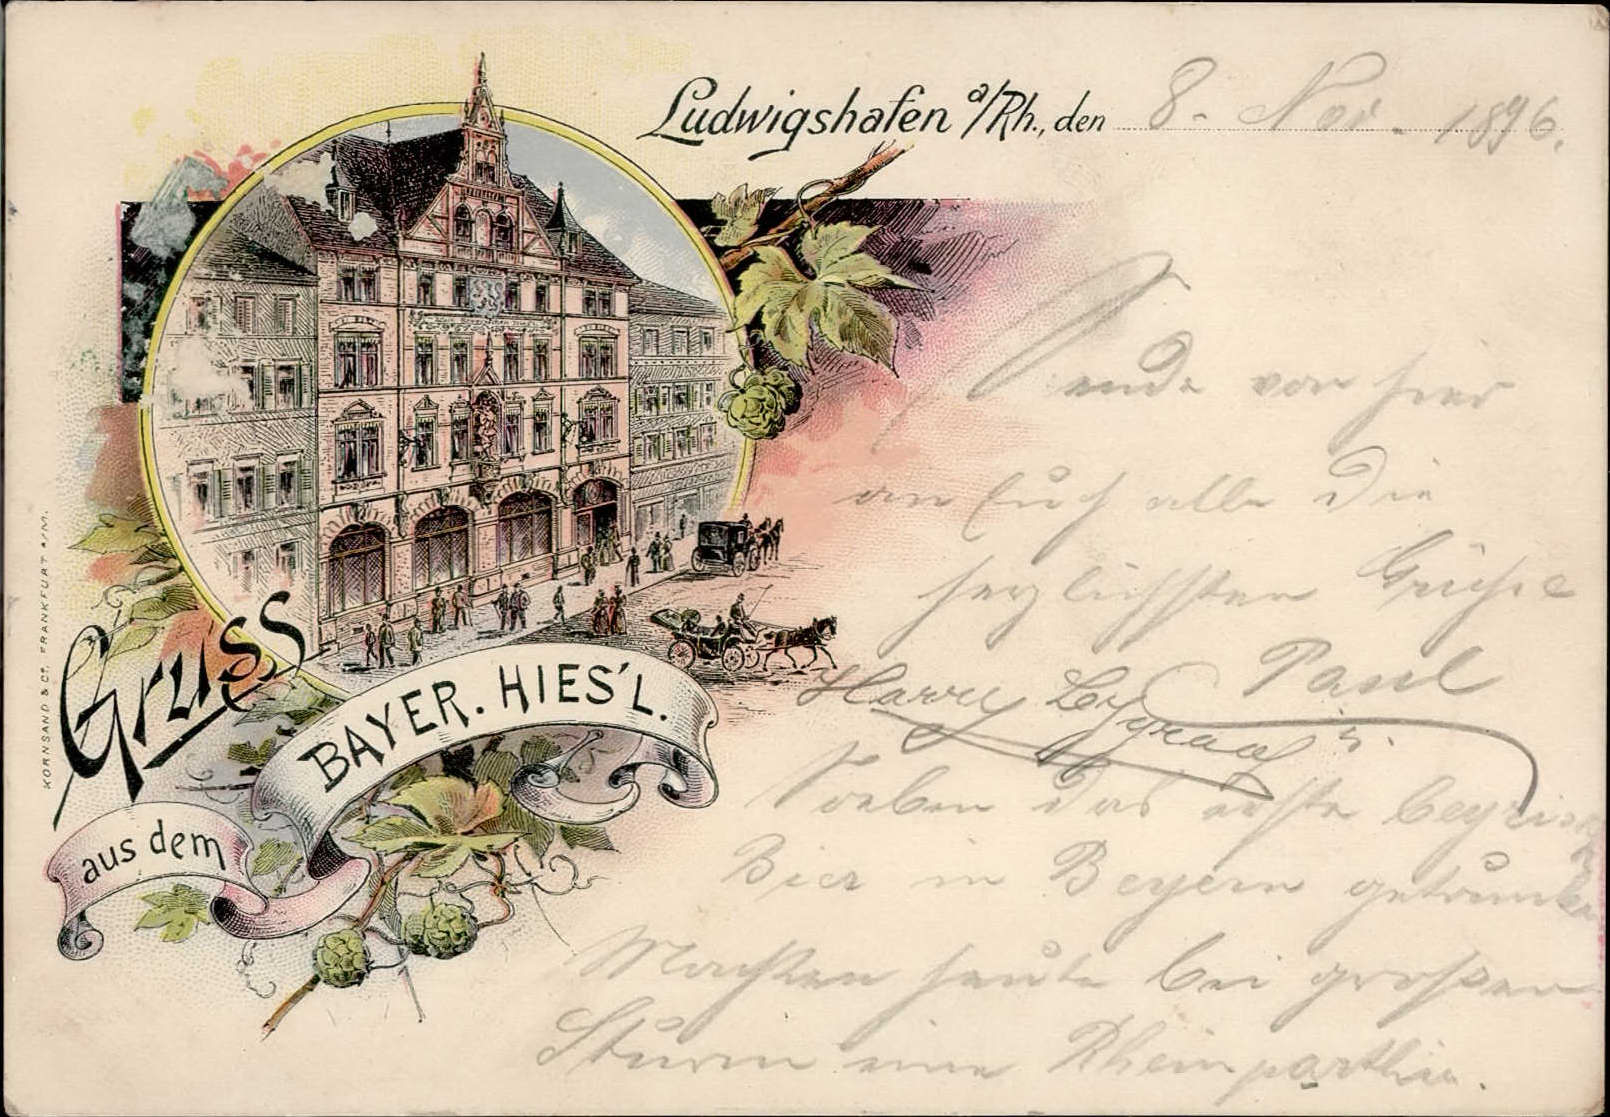 Ludwigshafen a/Rh., den 8. Nov. 1896.
Sende von hier
an Euch alle die
herzlichsten Grüße
Paul
Harry
u.
Soeben das erste bayrisch
Bier in Bayern getrunken
Machten heute bei großem
Sturm eine Rheinparthie.
Gruss
aus dem
BAYER. HIES'L.
KORNSAND & CO. FRANKFURT a/M.